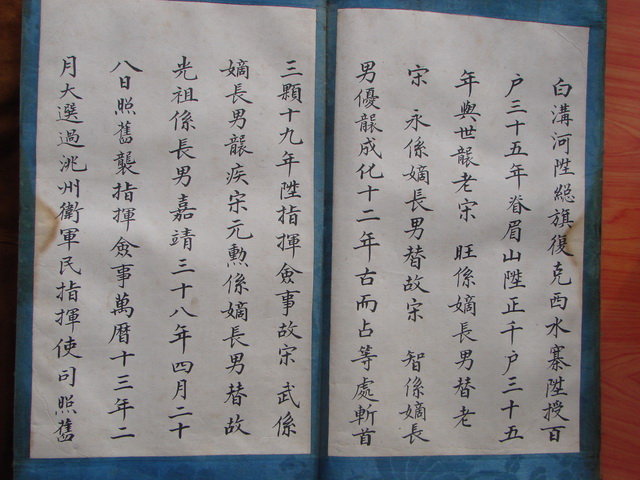 白溝河陞総旗復克西水寨陞授百
户三十五年脊眉山陞正千户三十五
年與世襲老宋 旺係嫡長男替老
宋 永係嫡長男替故宋 智係嫡長
男優襲成化十二年古而占等處斬首
三顆十九年陞指揮僉事故宋 武係
嫡長男襲疾宋元勲係嫡長男替故
光祖係長男嘉靖三十八年四月二十
八日照舊襲指揮僉事萬曆十三年二
月大選過洮州衛軍民指揮使司照舊